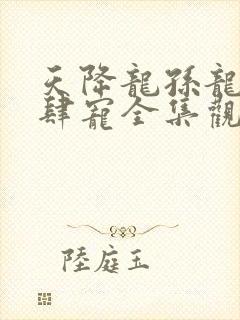 天降龍孫龍
肆寵全集觀
陸庭玉